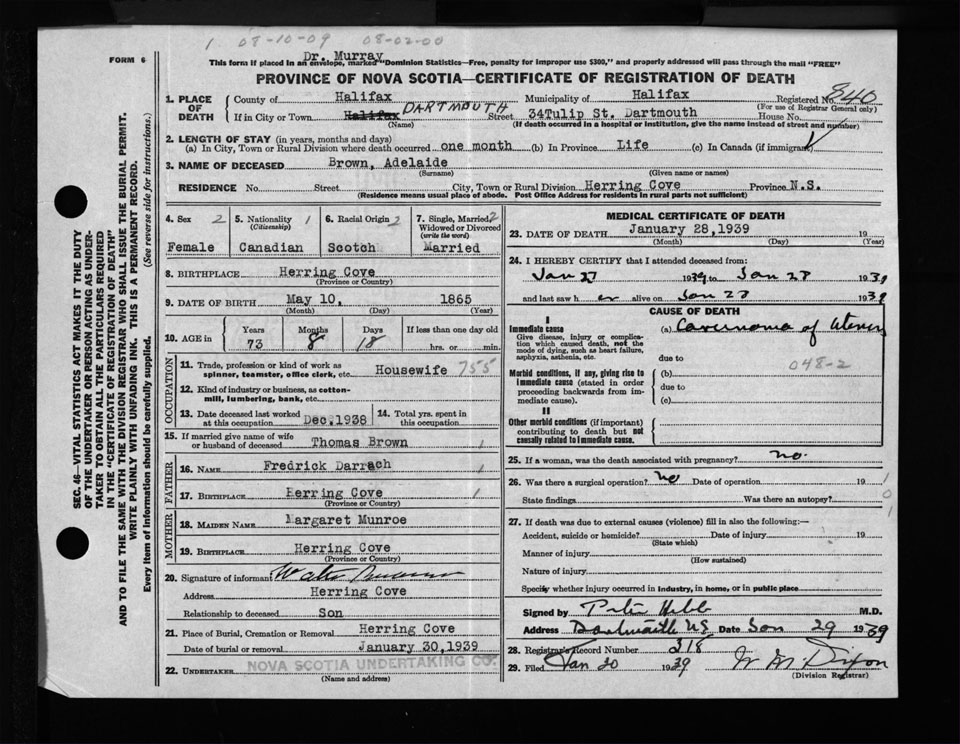 1 08-10-09 08-02-00
Dr. Murray
FORM 6
This form if placed in an envelope, marked "Dominion Statistics—Free, penalty for improper use $300," and properly addressed will pass through the mail "FREE"
PROVINCE OF NOVA SCOTIA—CERTIFICATE OF REGISTRATION OF DEATH
1. PLACE OF DEATH County of Halifax Municipality of Halifax Registered No. 840
(For use of Registrar General only)
If in City or Town Halifax DARTMOUTH Street 34Tulip St. Dartmouth House No.
(Name) (If death occurred in a hospital or institution, give the name instead of street and number)
2. LENGTH OF STAY (in years, months and days)
(a) In City, Town or Rural Division where death occurred one month (b) In Province Life (c) In Canada (if immigrant)
3. NAME OF DECEASED Brown, Adelaide
(Surname) (Given name or names)
RESIDENCE No. Street City, Town or Rural Division Herring Cove Province N.S.
(Residence means usual place of abode. Post Office Address for residents in rural parts not sufficient)
4. Sex 2 Female
5. Nationality 1 (Citizenship) Canadian
6. Racial Origin 2 Scotch
7. Single, Married, 2 Widowed or Divorced (write the word) Married
8. BIRTHPLACE Herring Cove
(Province or Country)
9. DATE OF BIRTH May 10, 1865
(Month) (Day) (Year)
10. AGE in Years Months Days If less than one day old
73 8 18 hrs. or min.
OCCUPATION
11. Trade, profession or kind of work as spinner, teamster, office clerk, etc. Housewife 755
12. Kind of industry or business, as cotton-mill, lumbering, bank, etc.
13. Date deceased last worked at this occupation Dec. 1938
14. Total yrs. spent in this occupation
15. If married give name of wife or husband of deceased Thomas Brown 1
FATHER
16. NAME Fredrick Darrach 1
17. BIRTHPLACE Herring Cove 1
(Province or Country)
MOTHER
18. MAIDEN NAME Margaret Munroe
19. BIRTHPLACE Herring Cove
(Province or Country)
20. Signature of informant Walter
Address Herring Cove
Relationship to deceased Son
21. Place of Burial, Cremation or Removal Herring Cove
Date of burial or removal January 30,1939
22. UNDERTAKER NOVA SCOTIA UNDERTAKING CO.
(Name and address)
MEDICAL CERTIFICATE OF DEATH
23. DATE OF DEATH January 28,1939 19
(Month) (Day) (Year)
24. I HEREBY CERTIFY that I attended deceased from:
Jan 27 1939 to Jan 28 1939
and last saw her alive on Jan 28 1939
CAUSE OF DEATH
I
Immediate cause (a) Carcinoma of Uterus
Give disease, injury or complication which caused death, not the mode of dying, such as heart failure, asphyxia, asthenia, etc.
due to
048-2
Morbid conditions, if any, giving rise to immediate cause (stated in order proceeding backwards from immediate cause).
(b)
due to
(c)
II
Other morbid conditions (if important) contributing to death but not causally related to immediate cause.
25. If a woman, was the death associated with pregnancy? no.
26. Was there a surgical operation? no Date of operation 19
State findings Was there an autopsy?
1
0
1
27. If death was due to external causes (violence) fill in also the following:—
Accident, suicide or homicide? Date of injury 19
(State which)
Manner of injury
(How sustained)
Nature of injury
Specify whether injury occurred in industry, in home, or in public place
Signed by M.D.
Address Dartmouth NS Date Jan 29 1939
28. Registrar's Record Number 218
29. Filed Jan 20 1939 W M Dixon
(Division Registrar)
SEC. 46—VITAL STATISTICS ACT MAKES IT THE DUTY
OF THE UNDERTAKER OR PERSON ACTING AS UNDER-
TAKER TO OBTAIN ALL THE PARTICULARS REQUIRED
IN THE "CERTIFICATE OF REGISTRATION OF DEATH"
AND TO FILE THE SAME WITH THE DIVISION REGISTRAR WHO SHALL ISSUE THE BURIAL PERMIT.
WRITE PLAINLY WITH UNFADING INK. THIS IS A PERMANENT RECORD.
Every item of information should be carefully supplied. (See reverse side for instructions.)